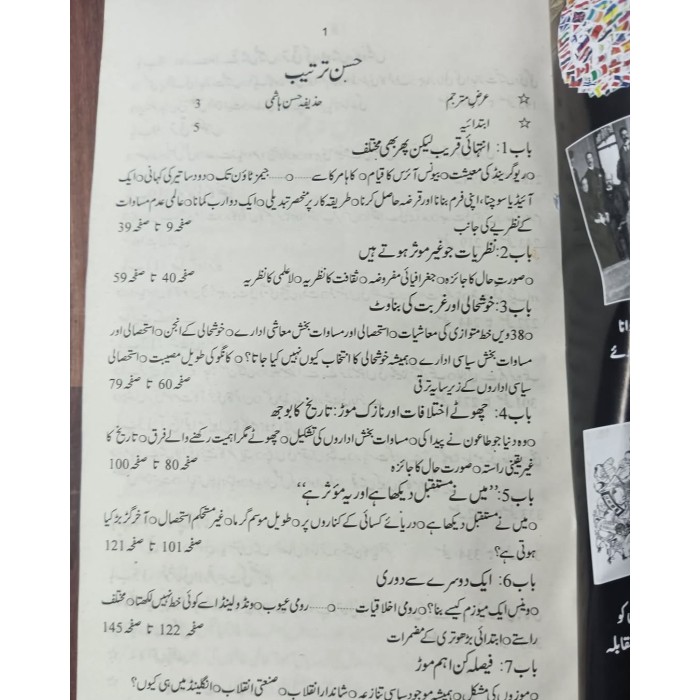 1
حسنِ ترتیب
☆ عرضِ مترجم حذیفہ حسن ہاشمی 3
☆ ابتدائیہ 5
باب 1: انتہائی قریب لیکن پھر بھی مختلف
○ریوگرینڈ کی معیشت ○بیونس آئرس کا قیام ○کاہامرکا سے ........ جیمز ٹاؤن تک ○دو دساتیر کی کہانی ○ایک
آئیڈیا سوچنا، اپنی فرم بنانا اور قرضہ حاصل کرنا ○طریقہ کار پر منحصر تبدیلی ○ایک دو ارب کمانا ○عالمی عدم مساوات
کے نظریے کی جانب صفحہ 9 تا صفحہ 39
باب 2: نظریات جو غیر موثر ہوتے ہیں
○صورتِ حال کا جائزہ ○جغرافیائی مفروضہ ○ثقافت کا نظریہ ○لاعلمی کا نظریہ صفحہ 40 تا صفحہ 59
باب 3: خوشحالی اور غربت کی بناوٹ
○38ویں خط متوازی کی معاشیات ○استحصالی اور مساوات بخش معاشی ادارے ○خوشحالی کے انجن ○استحصالی اور
مساوات بخش سیاسی ادارے ○ہمیشہ خوشحالی کا انتخاب کیوں نہیں کیا جاتا؟ ○کانگو کی طویل مصیبت ○استحصالی
سیاسی اداروں کے زیر سایہ ترقی صفحہ 60 تا صفحہ 79
باب 4: چھوٹے اختلافات اور نازک موڑ: تاریخ کا بوجھ
○وہ دنیا جو طاعون نے پیدا کی ○مساوات بخش اداروں کی تشکیل ○چھوٹے مگر اہمیت رکھنے والے فرق ○تاریخ کا
غیر یقینی راستہ ○صورت حال کا جائزہ صفحہ 80 تا صفحہ 100
باب 5: ’’میں نے مستقبل دیکھا ہے اور یہ مؤثر ہے‘‘
○میں نے مستقبل دیکھا ہے ○دریائے کسائی کے کناروں پر ○طویل موسم گرما ○غیر مستحکم استحصال ○آخر گڑبڑ کیا
ہوتی ہے؟ صفحہ 101 تا صفحہ 121
باب 6: ایک دوسرے سے دوری
○وینس ایک میوزیم کیسے بنا؟ ○رومی اخلاقیات ........ رومی عیوب ○ونڈولینڈا سے کوئی خط نہیں لکھتا ○مختلف
راستے ○ابتدائی بڑھوتری کے مضمرات صفحہ 122 تا صفحہ 145
باب 7: فیصلہ کن اہم موڑ
○موزوں کی مشکل ○ہمیشہ موجود سیاسی تنازعہ ○شاندار انقلاب ○صنعتی انقلاب ○انگلینڈ میں ہی کیوں؟